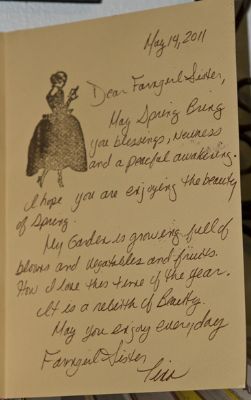 May 14, 2011
Dear Farmgirl Sister,
May Spring Bring
you blessings, newness
and a peaceful awakening.
I hope you are enjoying the beauty
of Spring.
My Garden is growing full of
blooms and vegetables and fruits.
How I love this time of the year.
It is a rebirth of Beauty.
May you enjoy everyday
Farmgirl Sister
Tina